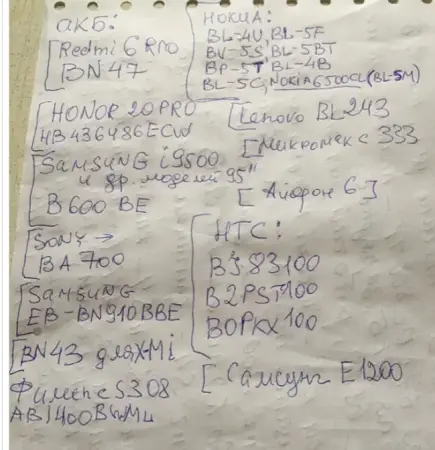 АКБ:
Redmi 6 PRO
BN47
HONOR 20 PRO
HB436486ECW
SAMSUNG i9500
и др. моделей 95"
B600 BE
SONY →
BA700
SAMSUNG
EB-BN910BBE
BN43 для XMi
Филипс S308
AB1400BWML
НОКИА:
BL-4U, BL-5F
BV-5S, BL-5BT
BP-5T BL-4B
BL-5C, NOKIA6500CL(BL-5M)
Lenovo BL243
Микромакс 333
Айфон 6
HTC:
BJ83100
B2PST100
BOPKX100
Самсунг E1200